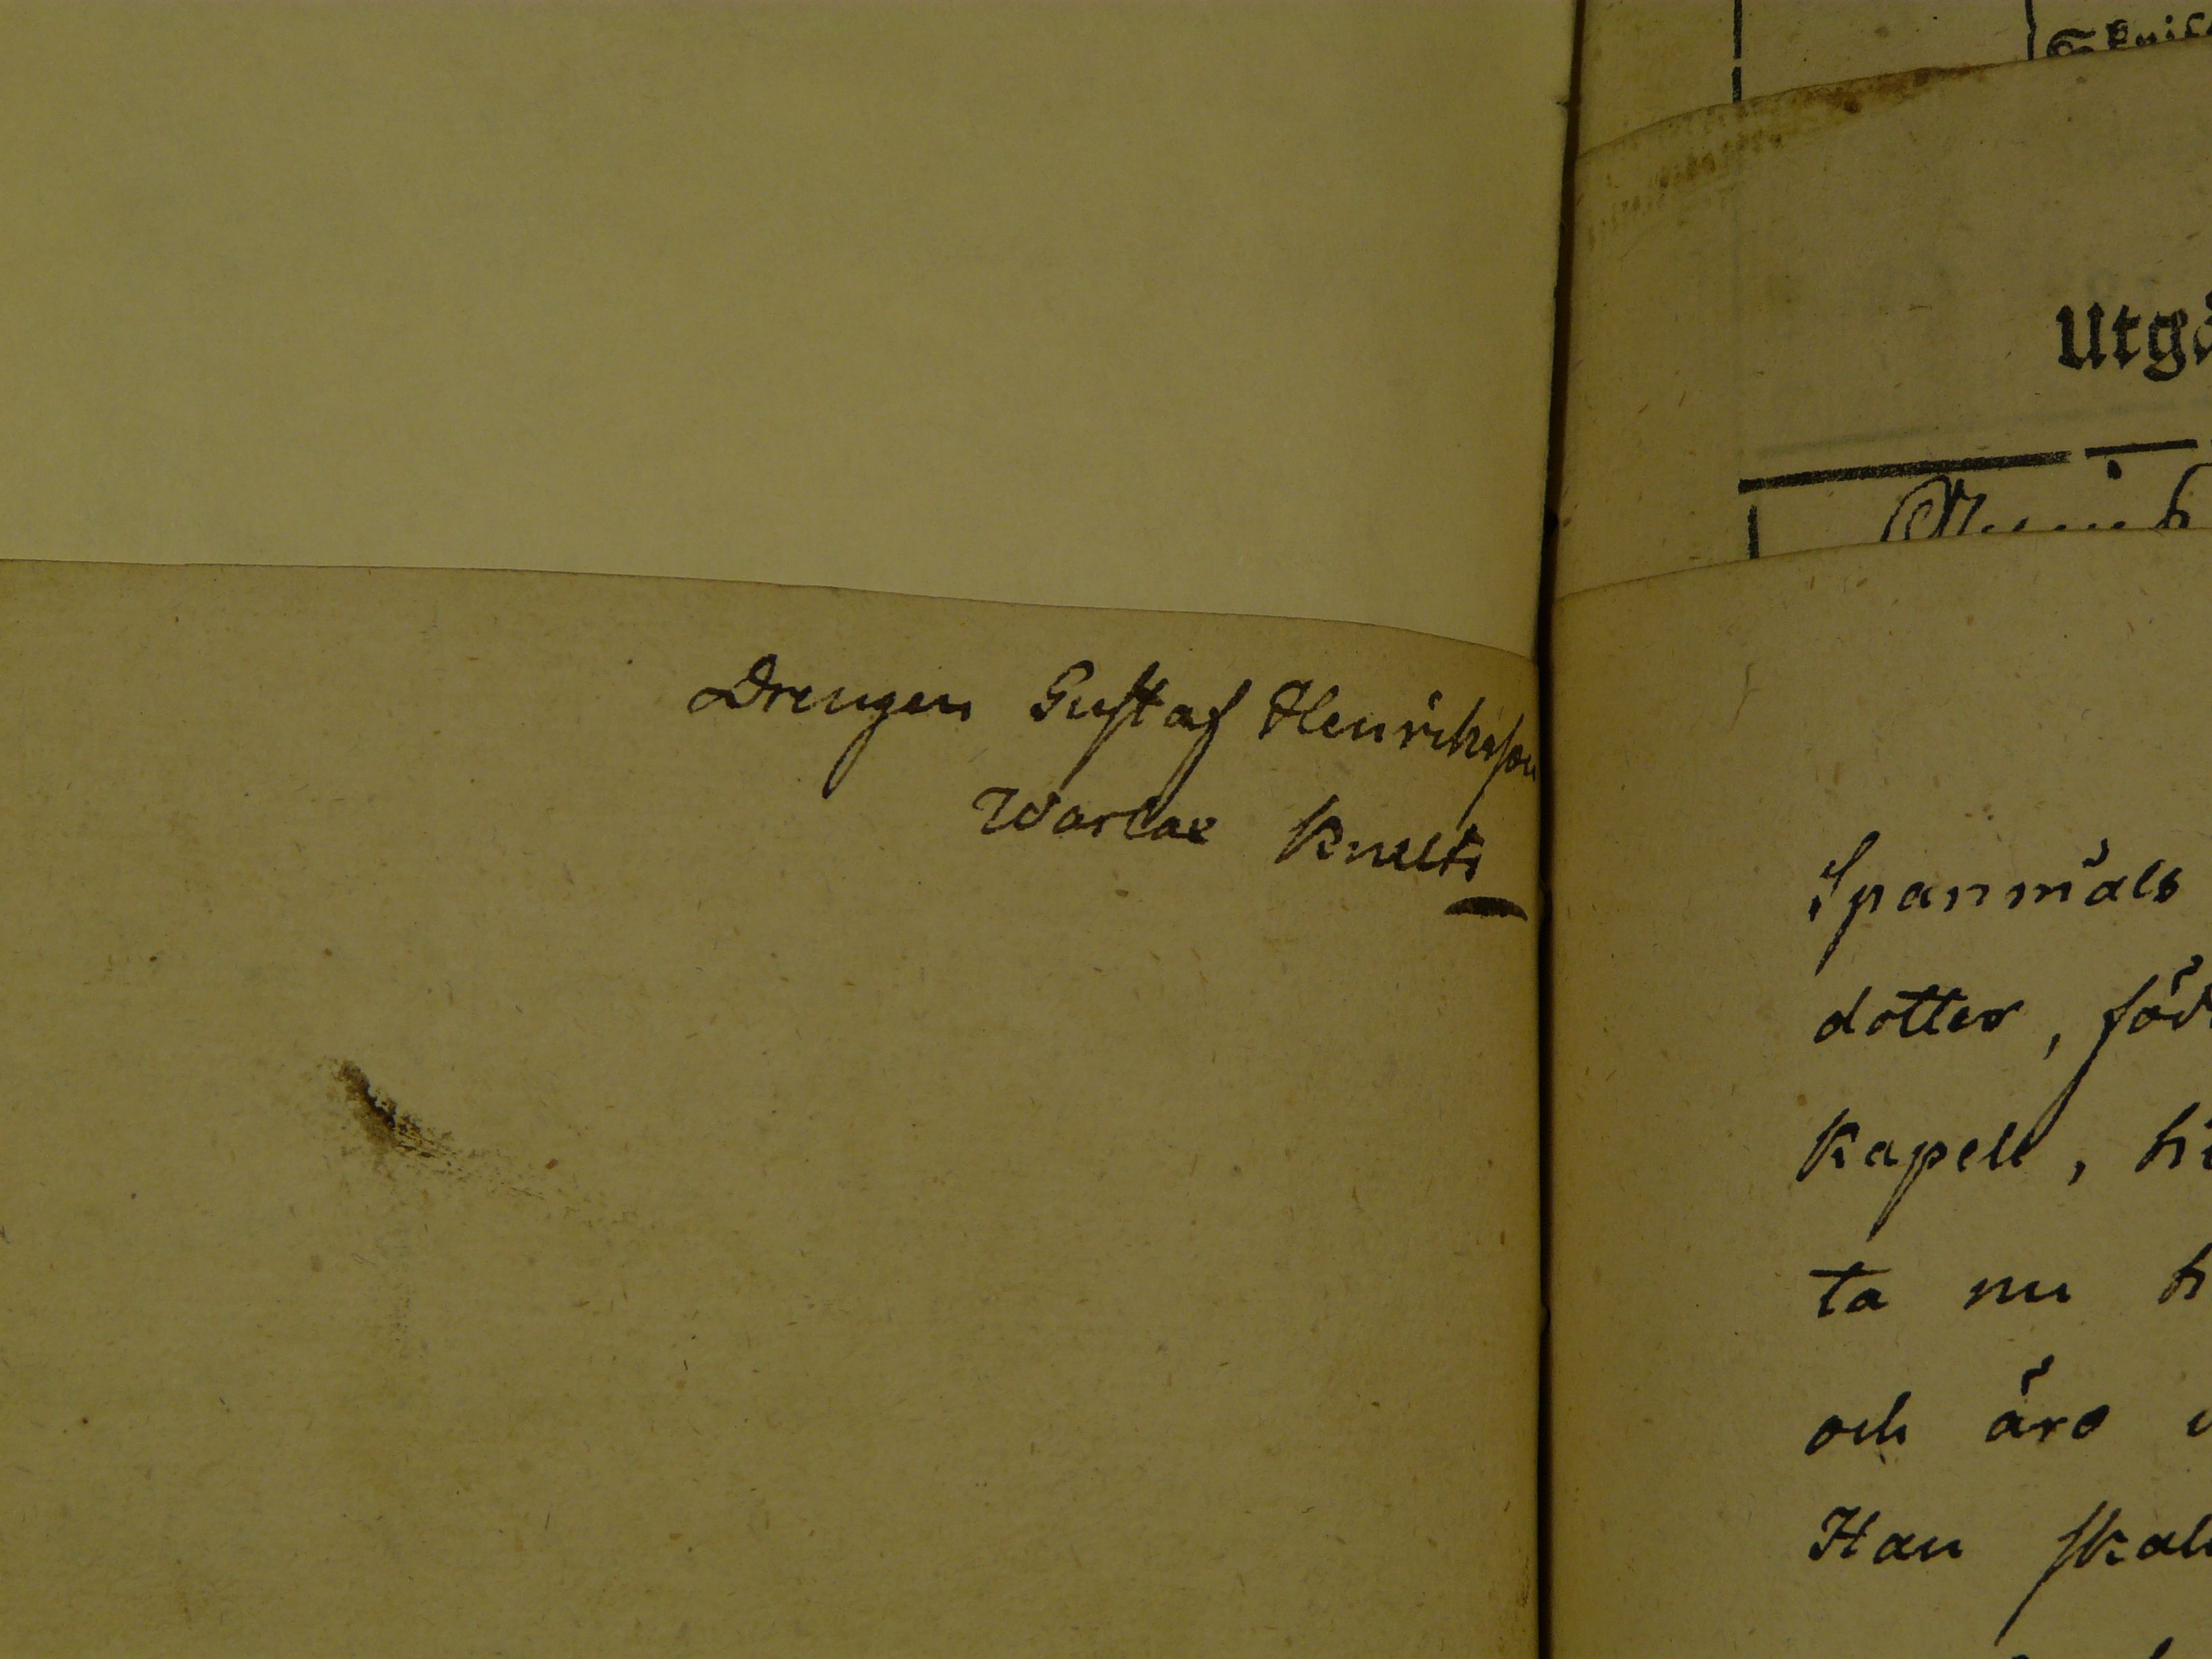 Drengen Gustaf Henriksson
Warlax Knuts
Utgå
Spanmåls
dotter, föd
Kapell, hi
ta nu h
och äro
Han skall